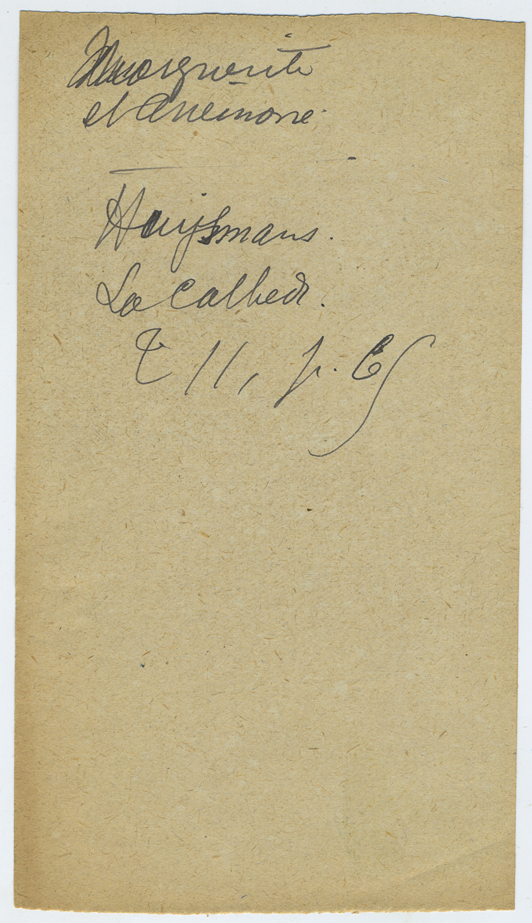 Marguerite
et Anemone.
Huysmans.
La Cathedr.
T II, p.